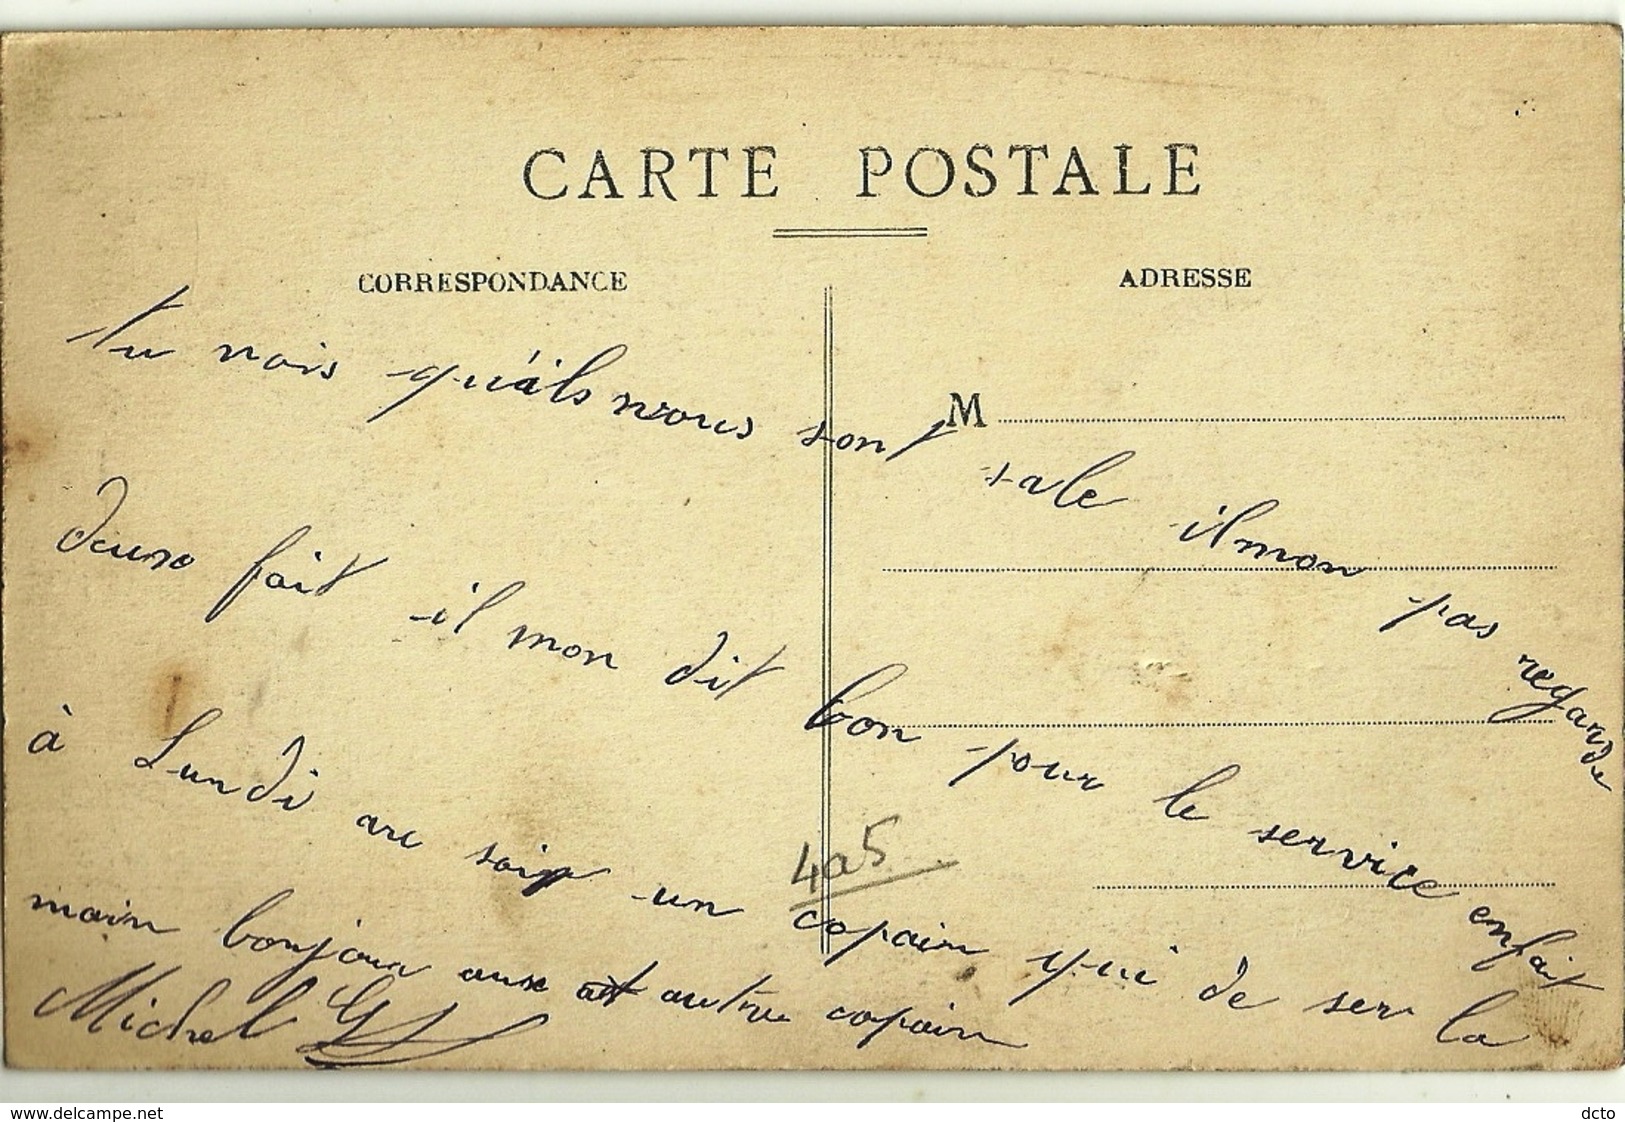 CARTE POSTALE
CORRESPONDANCE
ADRESSE
M
tu vois qu'áils nvous sont sale il mon pas regarde
fait il mon dit bon pour le service enfait
à Lundi un copain qui de ser la
main bonjour aux autre copain
Michel
4a5
www.delcampe.net
dcto